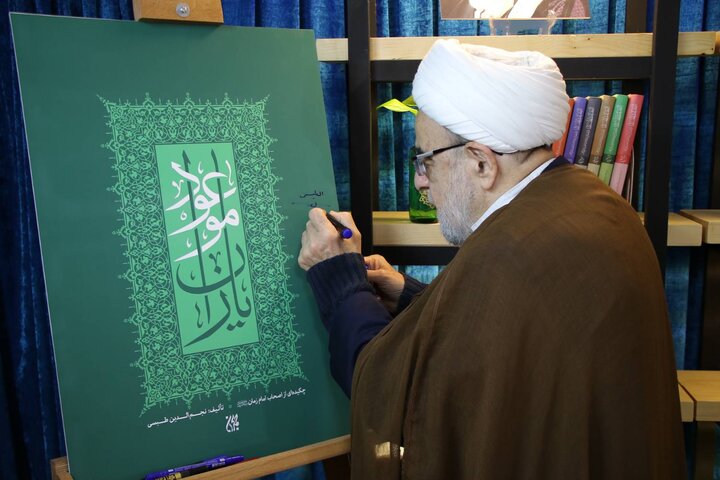 یاران
موعود
چکیده‌ای از اصحاب امام زمان
تألیف: نجم‌الدین طبسی